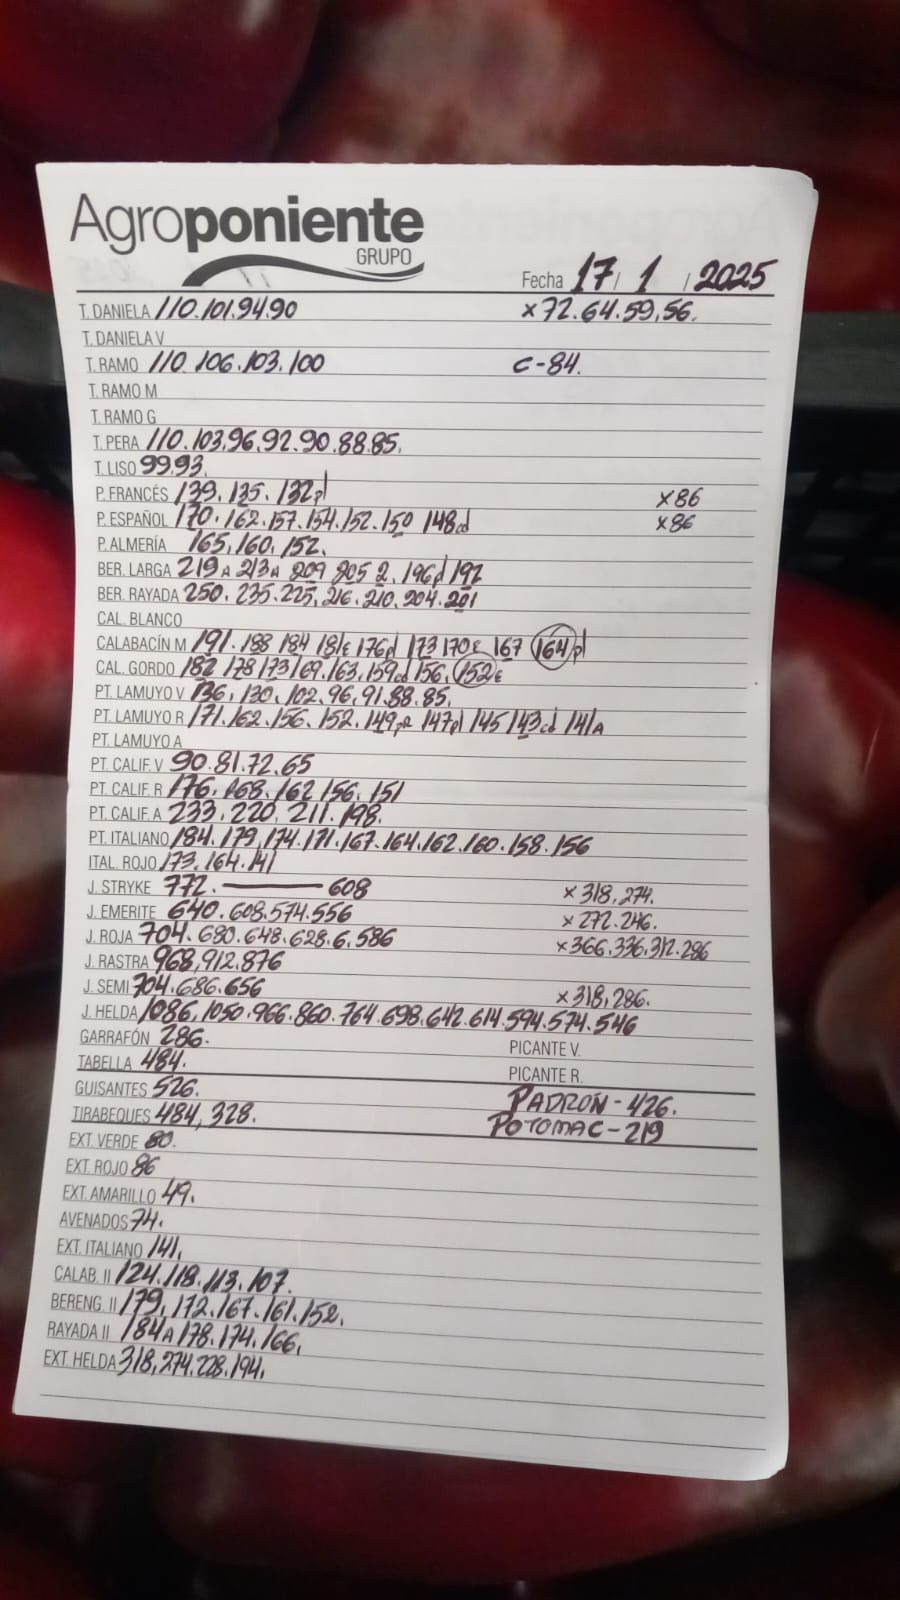 Agroponiente
GRUPO
Fecha 17/ 1 / 2025
T. DANIELA 110.101.94.90 x72.64.59,56.
T. DANIELA V
T. RAMO 110.106.103.100 C-84.
T. RAMO M
T. RAMO G
T. PERA 110.103,96,92.90.88.85.
T. LISO 99,93.
P. FRANCÉS 139.135.132pl x86
P. ESPAÑOL 170.162.157.154.152.150 148cd x86
P. ALMERÍA 165,160,152.
BER. LARGA 219A 213A 209 205 2, 196pl 192
BER. RAYADA 250.235.225,216.210.204.201
CAL. BLANCO
CALABACÍN M 191.188 184 181E 176pl 173 170E 167 164pl
CAL. GORDO 182 178 173 169.163.159cd 156, 152E
PT. LAMUYO V 136,130,102,96,91.88.85,
PT. LAMUYO R 171.162.156.152.149pR 147pl 145 143cd 141A
PT. LAMUYO A
PT. CALIF. V 90.81.72.65
PT. CALIF. R 176, 168.162 156.151
PT. CALIF. A 233.220,211.198.
PT. ITALIANO 184.179,174.171.167.164.162.160.158.156
ITAL. ROJO 173.164.141
J. STRYKE 772. — 608 x318,274.
J. EMERITE 640.608.574.556 x272.246.
J. ROJA 704.680.648.628.6,586 x366.336.312.286
J. RASTRA 968,912.876
J. SEMI 704.686.656 x318,286.
J. HELDA 1086,1050.966.860.764.698.642.614.594.574.546
GARRAFÓN 286. PICANTE V.
TABELLA 484. PICANTE R.
GUISANTES 526. PADRÓN-426.
TIRABEQUES 484,328. POTOMAC-219
EXT. VERDE 80.
EXT. ROJO 86
EXT. AMARILLO 49.
AVENADOS 74.
EXT. ITALIANO 141,
CALAB. II 124.118.113.107.
BERENG. II 179,172.167.161.152,
RAYADA II 184A 178.174.166,
EXT. HELDA 318,274.228.194.